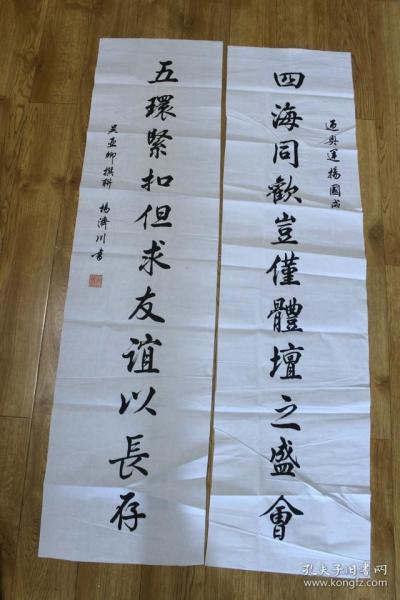 迎奥運揚國威
四海同歡豈僅體壇之盛會
五環緊扣但求友誼以長存
吴亚卿撰聯 楊濟川書
孔夫子旧书网
www.kongfz.com